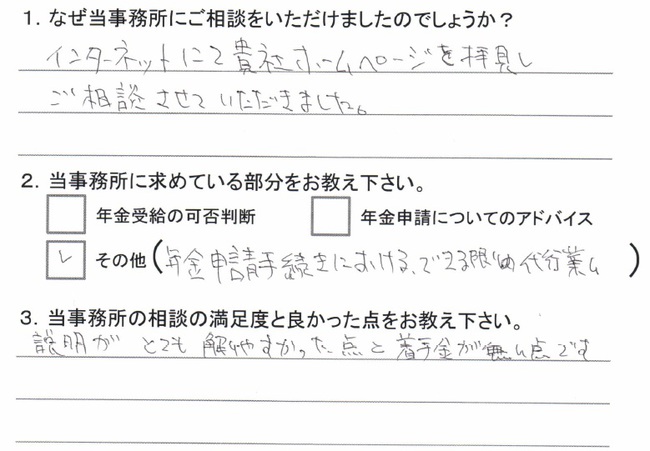 1. なぜ当事務所にご相談をいただけましたのでしょうか？
インターネットにて貴社ホームページを拝見し
ご相談させていただきました。
2. 当事務所に求めている部分をお教え下さい。
年金受給の可否判断 年金申請についてのアドバイス
その他(年金申請手続きにおける、できる限りの代行業ム)
3. 当事務所の相談の満足度と良かった点をお教え下さい。
説明がとても解りやすかった点と着手金が無い点です